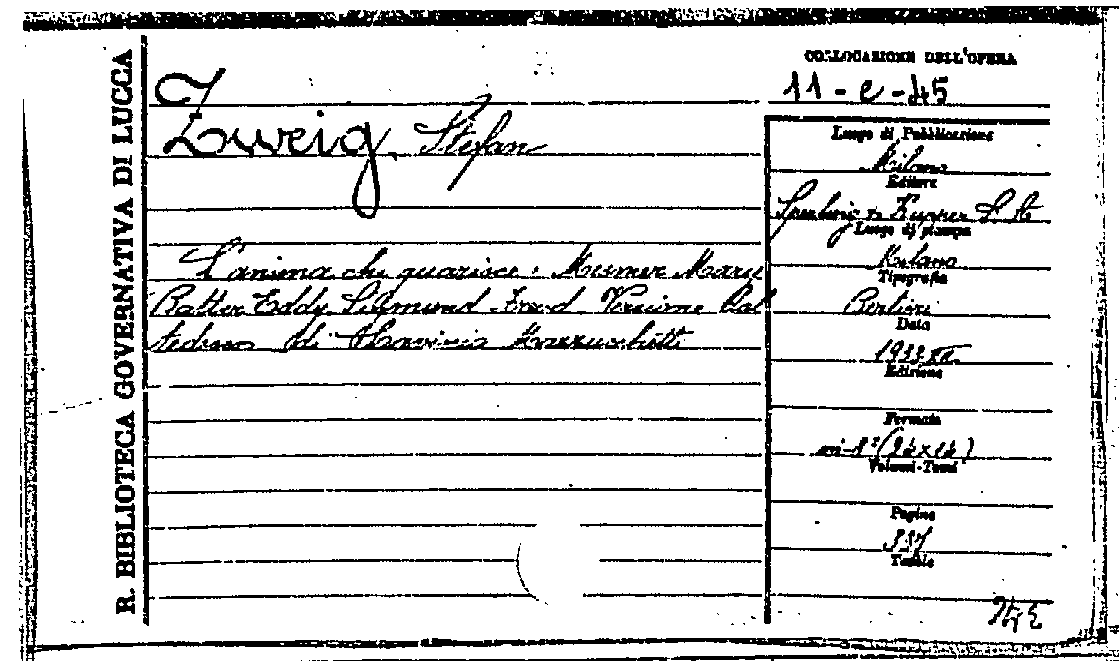 R. BIBLIOTECA GOVERNATIVA DI LUCCA
COLLOCAZIONE DELL'OPERA
11-e-45
Zweig, Stefan
L'anima che guarisce: Mesmer Mary
Backer Eddy Sigmund Freud Versione Dal
tedesco di Lavinia Mazzucchetti
Luogo di Pubblicazione
Milano
Editore
Sperling & Kupfer S. A.
Luogo di stampa
Milano
Tipografia
Bertieri
Data
1933 XI
Edizione
Formato
in-8°
Volumi-Tomi
Pagine
337
Tavole